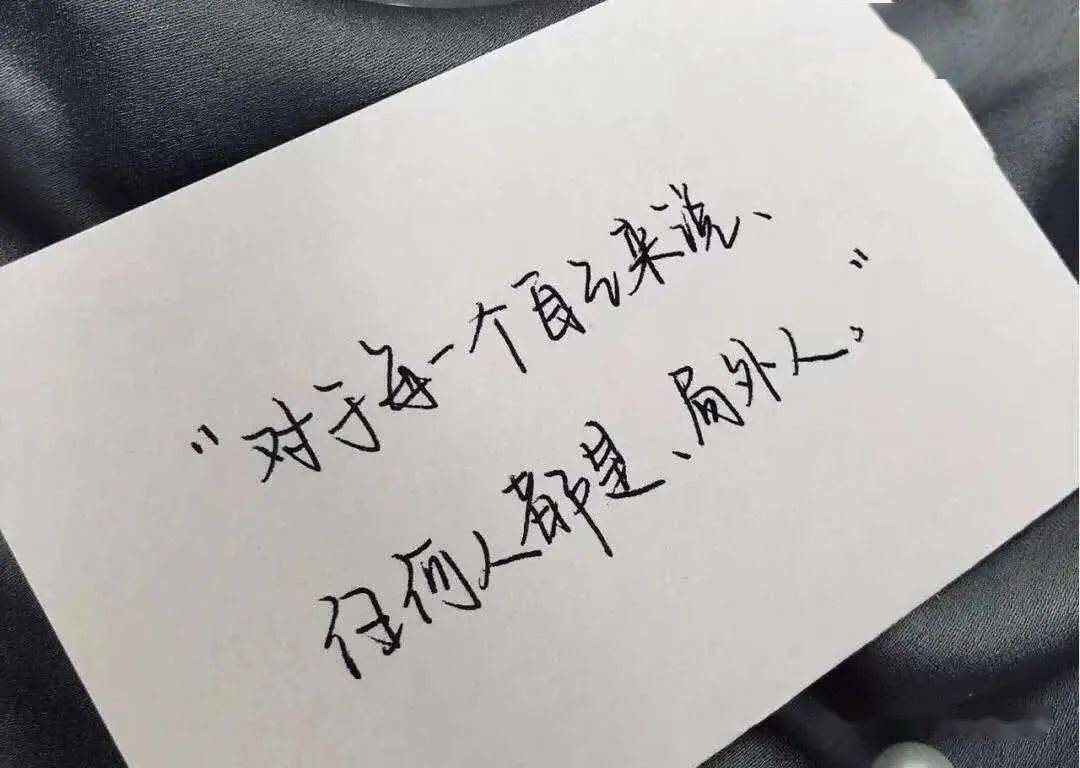 “对于每一个自己来说、
任何人都是、局外人”